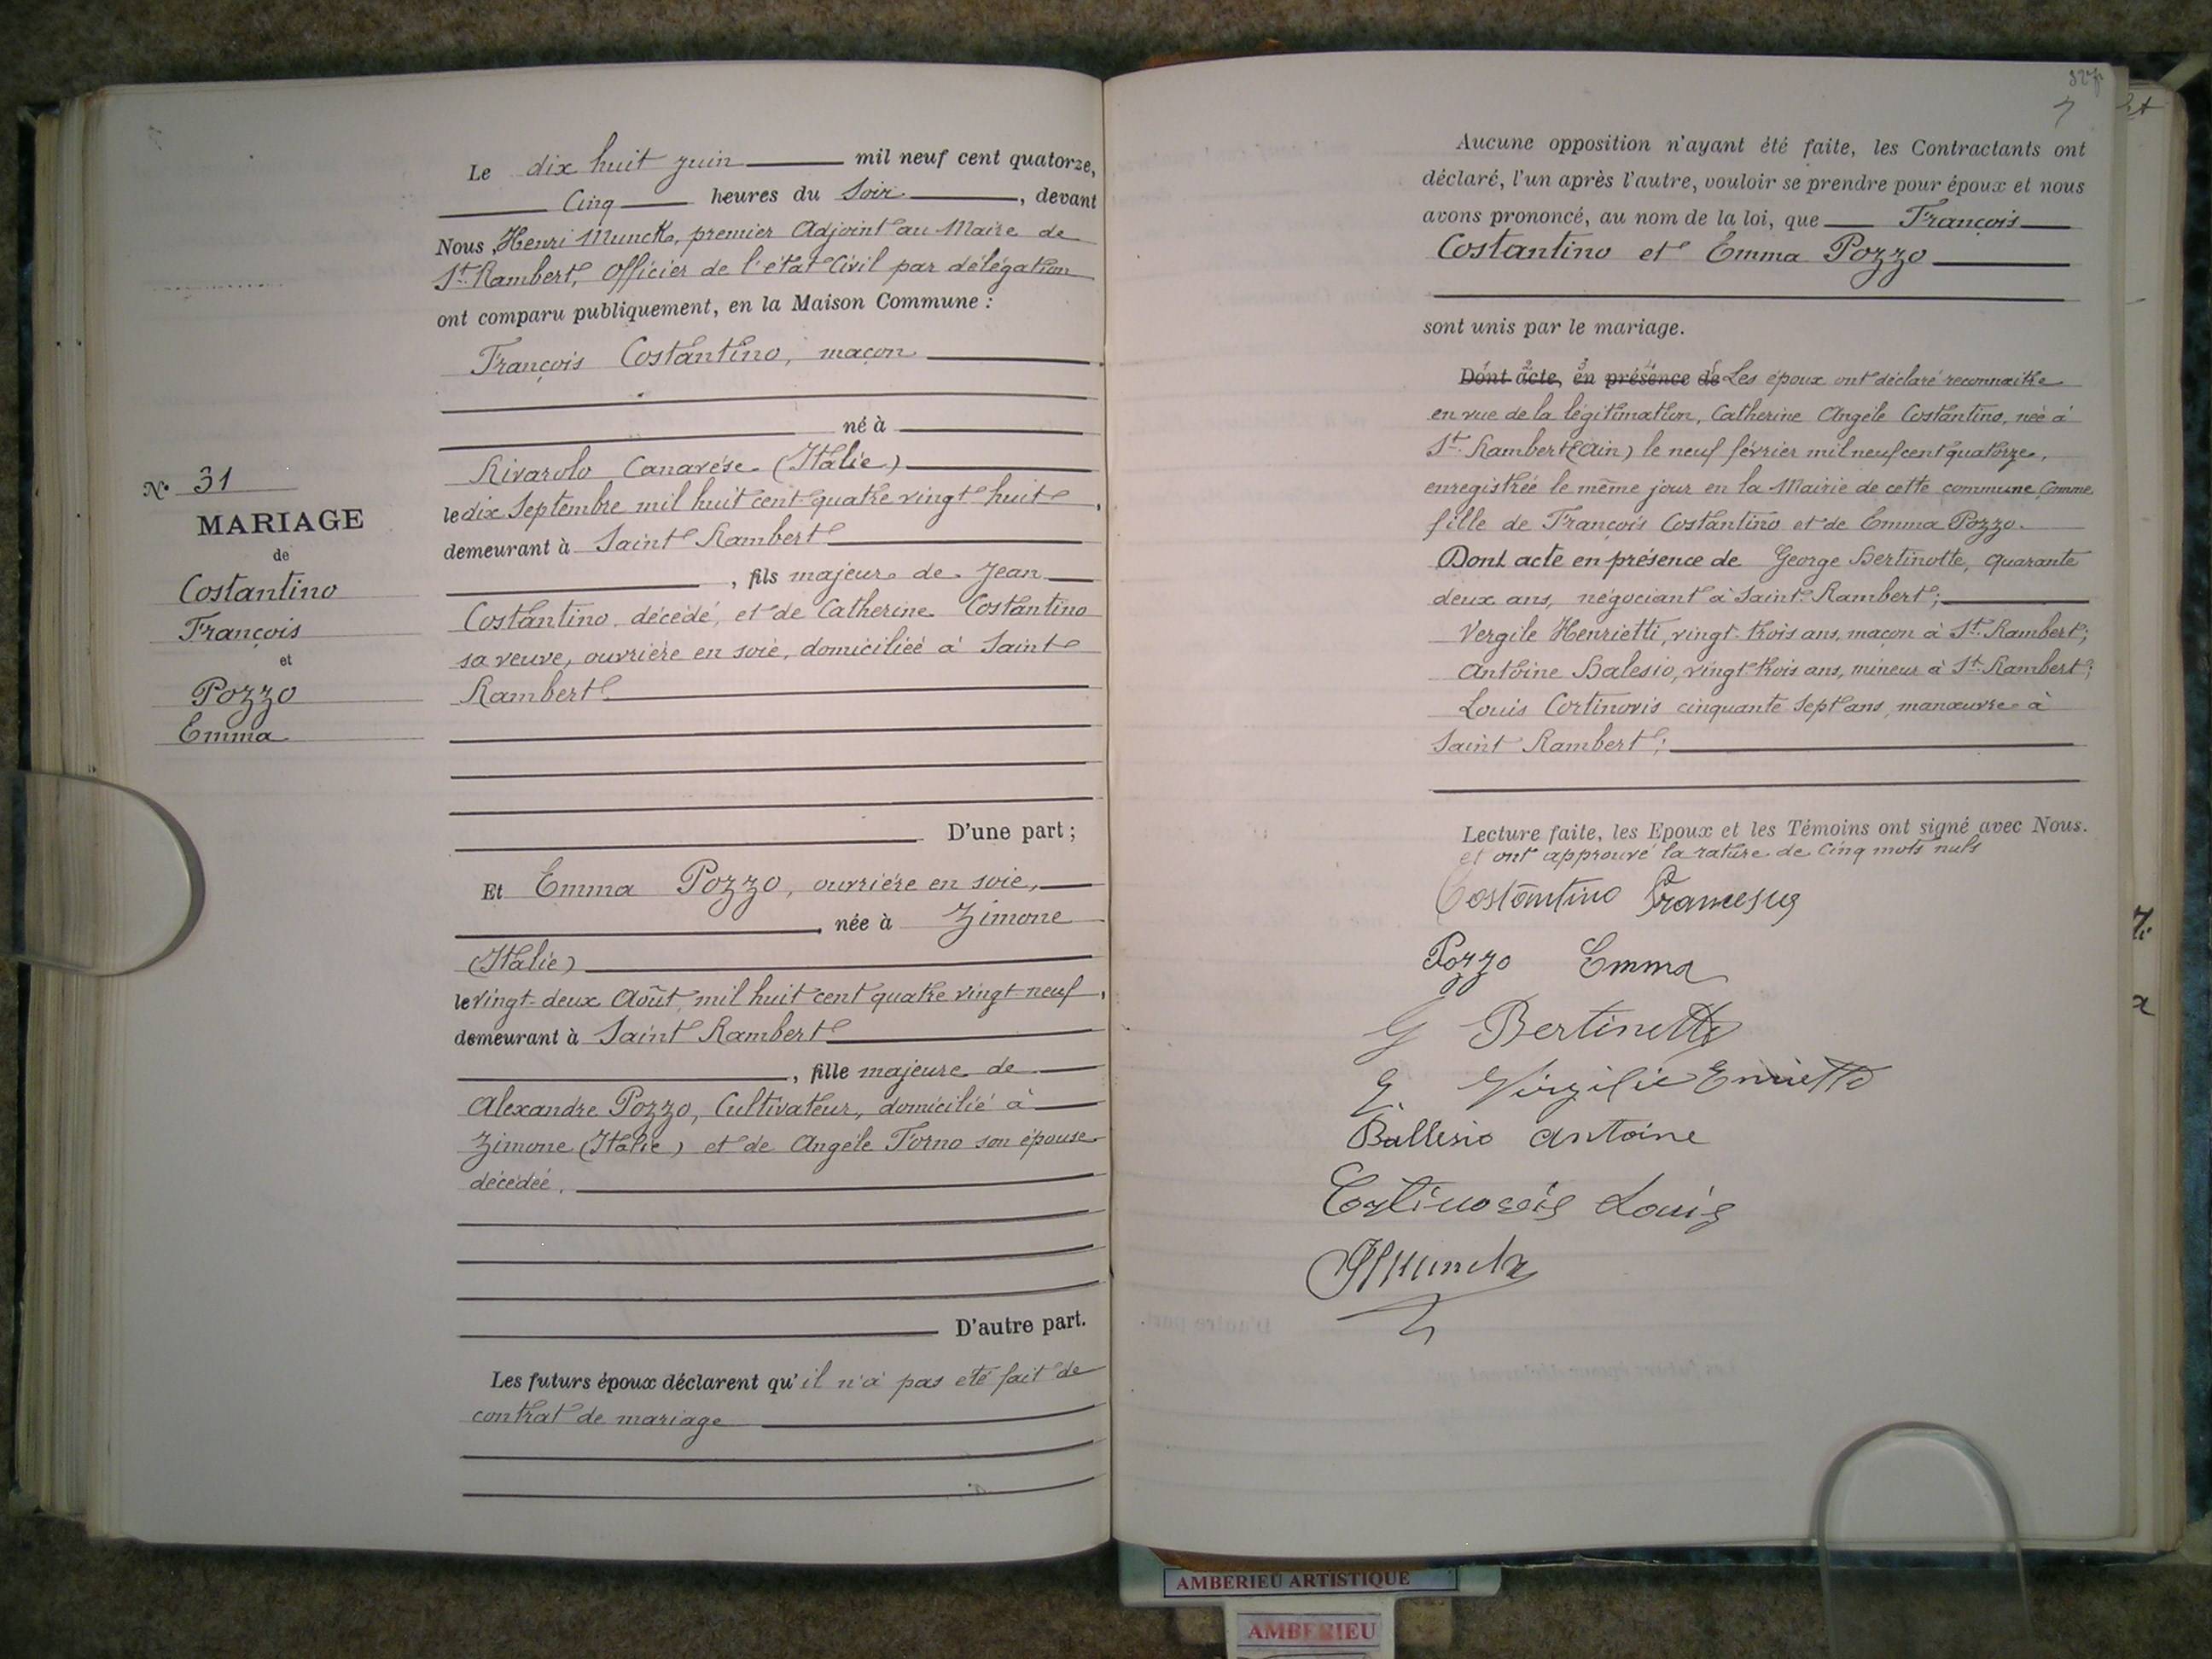 N° 31
MARIAGE
de
Costantino
François
et
Pozzo
Emma
Le dix huit juin mil neuf cent quatorze,
Cinq heures du Soir, devant
Nous, Henri Munck, premier Adjoint au Maire de
St. Rambert, Officier de l'état Civil par délégation
ont comparu publiquement, en la Maison Commune :
François Costantino, maçon
né à
Rivarolo Canavèse (Italie)
le dix Septembre mil huit cent quatre vingt huit,
demeurant à Saint Rambert
, fils majeur de Jean
Costantino, décédé, et de Catherine Costantino
sa veuve, ouvrière en soie, domiciliée à Saint
Rambert
D'une part ;
Et Emma Pozzo, ouvrière en soie,
, née à Zimone
(Italie)
le vingt-deux Août mil huit cent quatre vingt neuf,
demeurant à Saint Rambert
, fille majeure de
Alexandre Pozzo, Cultivateur, domicilié à
Zimone (Italie) et de Angèle Torno son épouse
décédée.
D'autre part.
Les futurs époux déclarent qu'il n'a pas été fait de
contrat de mariage
Aucune opposition n'ayant été faite, les Contractants ont
déclaré, l'un après l'autre, vouloir se prendre pour époux et nous
avons prononcé, au nom de la loi, que François
Costantino et Emma Pozzo
sont unis par le mariage.
Dont acte, en présence de Les époux ont déclaré reconnaitre
en vue de la légitimation, Catherine Angèle Costantino, née à
St. Rambert (Ain) le neuf février mil neuf cent quatorze,
enregistrée le même jour en la Mairie de cette commune, Comme
fille de François Costantino et de Emma Pozzo.
Dont acte en présence de George Bertinotte, quarante
deux ans, négociant à Saint Rambert ;
Vergile Henrietti, vingt-trois ans, maçon à St. Rambert ;
Antoine Balesio, vingt trois ans, mineur à St. Rambert ;
Louis Cortinovis cinquante Sept ans, manœuvre à
Saint Rambert ;
Lecture faite, les Epoux et les Témoins ont signé avec Nous.
et ont approuvé la rature de Cinq mots nuls
Costantino
Pozzo Emma
G Bertinetti
Ballesio Antoine
Cortinovis Louis
HMunck
AMBERIEU ARTISTIQUE
AMBERIEU